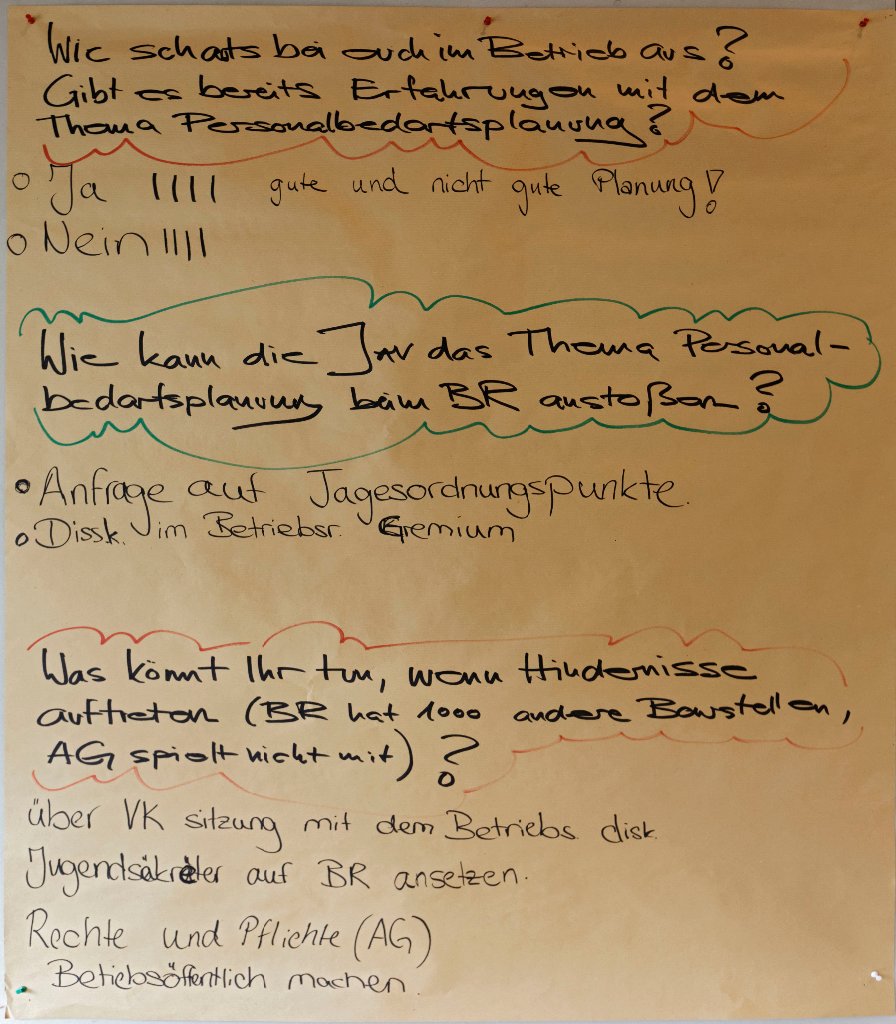 Wie schauts bei euch im Betrieb aus?
Gibt es bereits Erfahrungen mit dem
Thema Personalbedarfsplanung?
Ja |||| gute und nicht gute Planung!
Nein ||||
Wie kann die JAV das Thema Personal-
bedarfsplanung beim BR anstoßen?
Anfrage auf Tagesordnungspunkte.
Dissk. im Betriebsr. Gremium
Was könnt Ihr tun, wenn Hindernisse
auftreten (BR hat 1000 andere Baustellen,
AG spielt nicht mit)?
über VK sitzung mit dem Betriebs disk.
Jugendsäkreter auf BR ansetzen.
Rechte und Pflichte (AG)
Betiebsöffentlich machen.